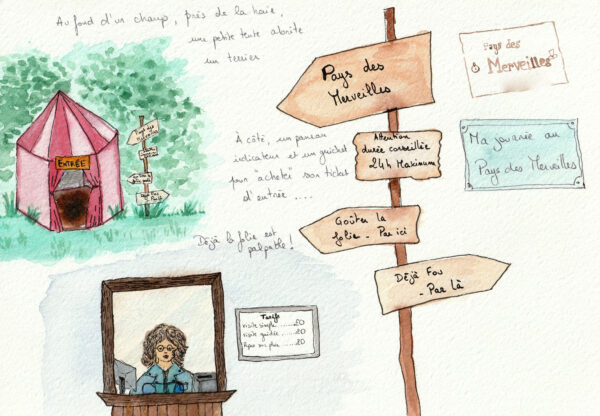 Au fond d'un champ, près de la haie,
une petite tente abrite
un terrier
ENTRÉE
À côté, un panneau
indicateur et un guichet
pour "acheté" son ticket
d'entrée ....
Déjà la folie est
palpable !
Pays des
Merveilles
Attention
durée conseillée
24h Maximum
Goûter la
folie - Par ici
Déjà Fou
- Par Là
Pays des
Merveilles
Ma journée au
Pays des Merveilles
Tarifs
visite simple ......20
visite guidée ......20